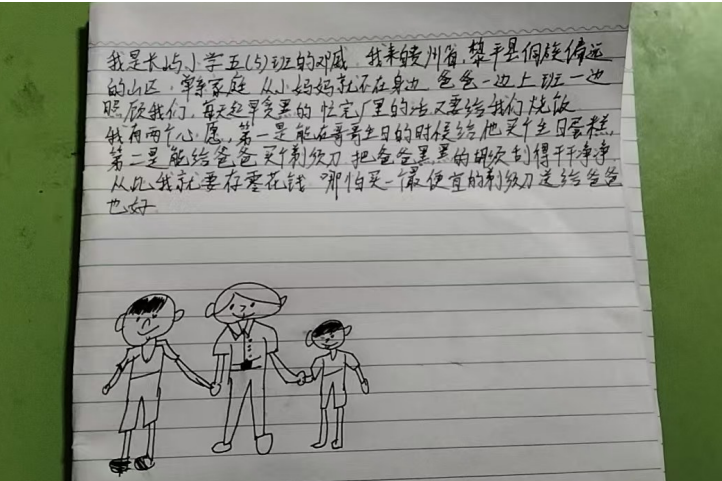 我是长屿小学五(5)班的邓威 我来自贵州省,黎平县侗族偏远
的山区,单亲家庭 从小妈妈就不在身边 爸爸一边上班一边
照顾我们,每天起早贪黑的 忙完厂里的活又要给我们烧饭
我有两个心愿,第一是能在哥哥生日的时候给他买个生日蛋糕,
第二是能给爸爸买个剃须刀 把爸爸黑黑的胡须刮得干干净净
从此我就要存零花钱 哪怕买一个最便宜的剃须刀送给爸爸
也好